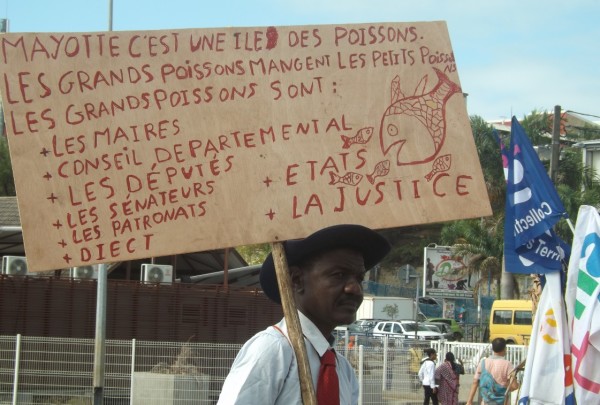 MAYOTTE C'EST UNE ILE DES POISSONS.
LES GRANDS POISSONS MANGENT LES PETITS POISSONS
LES GRANDS POISSONS SONT :
+ LES MAIRES
+ CONSEIL DEPARTEMENTAL
+ LES DÉPUTÉS
+ LES SÉNATEURS
+ LES PATRONATS
+ DIECT
+ ETATS
+ LA JUSTICE
Collecti
de
Territ